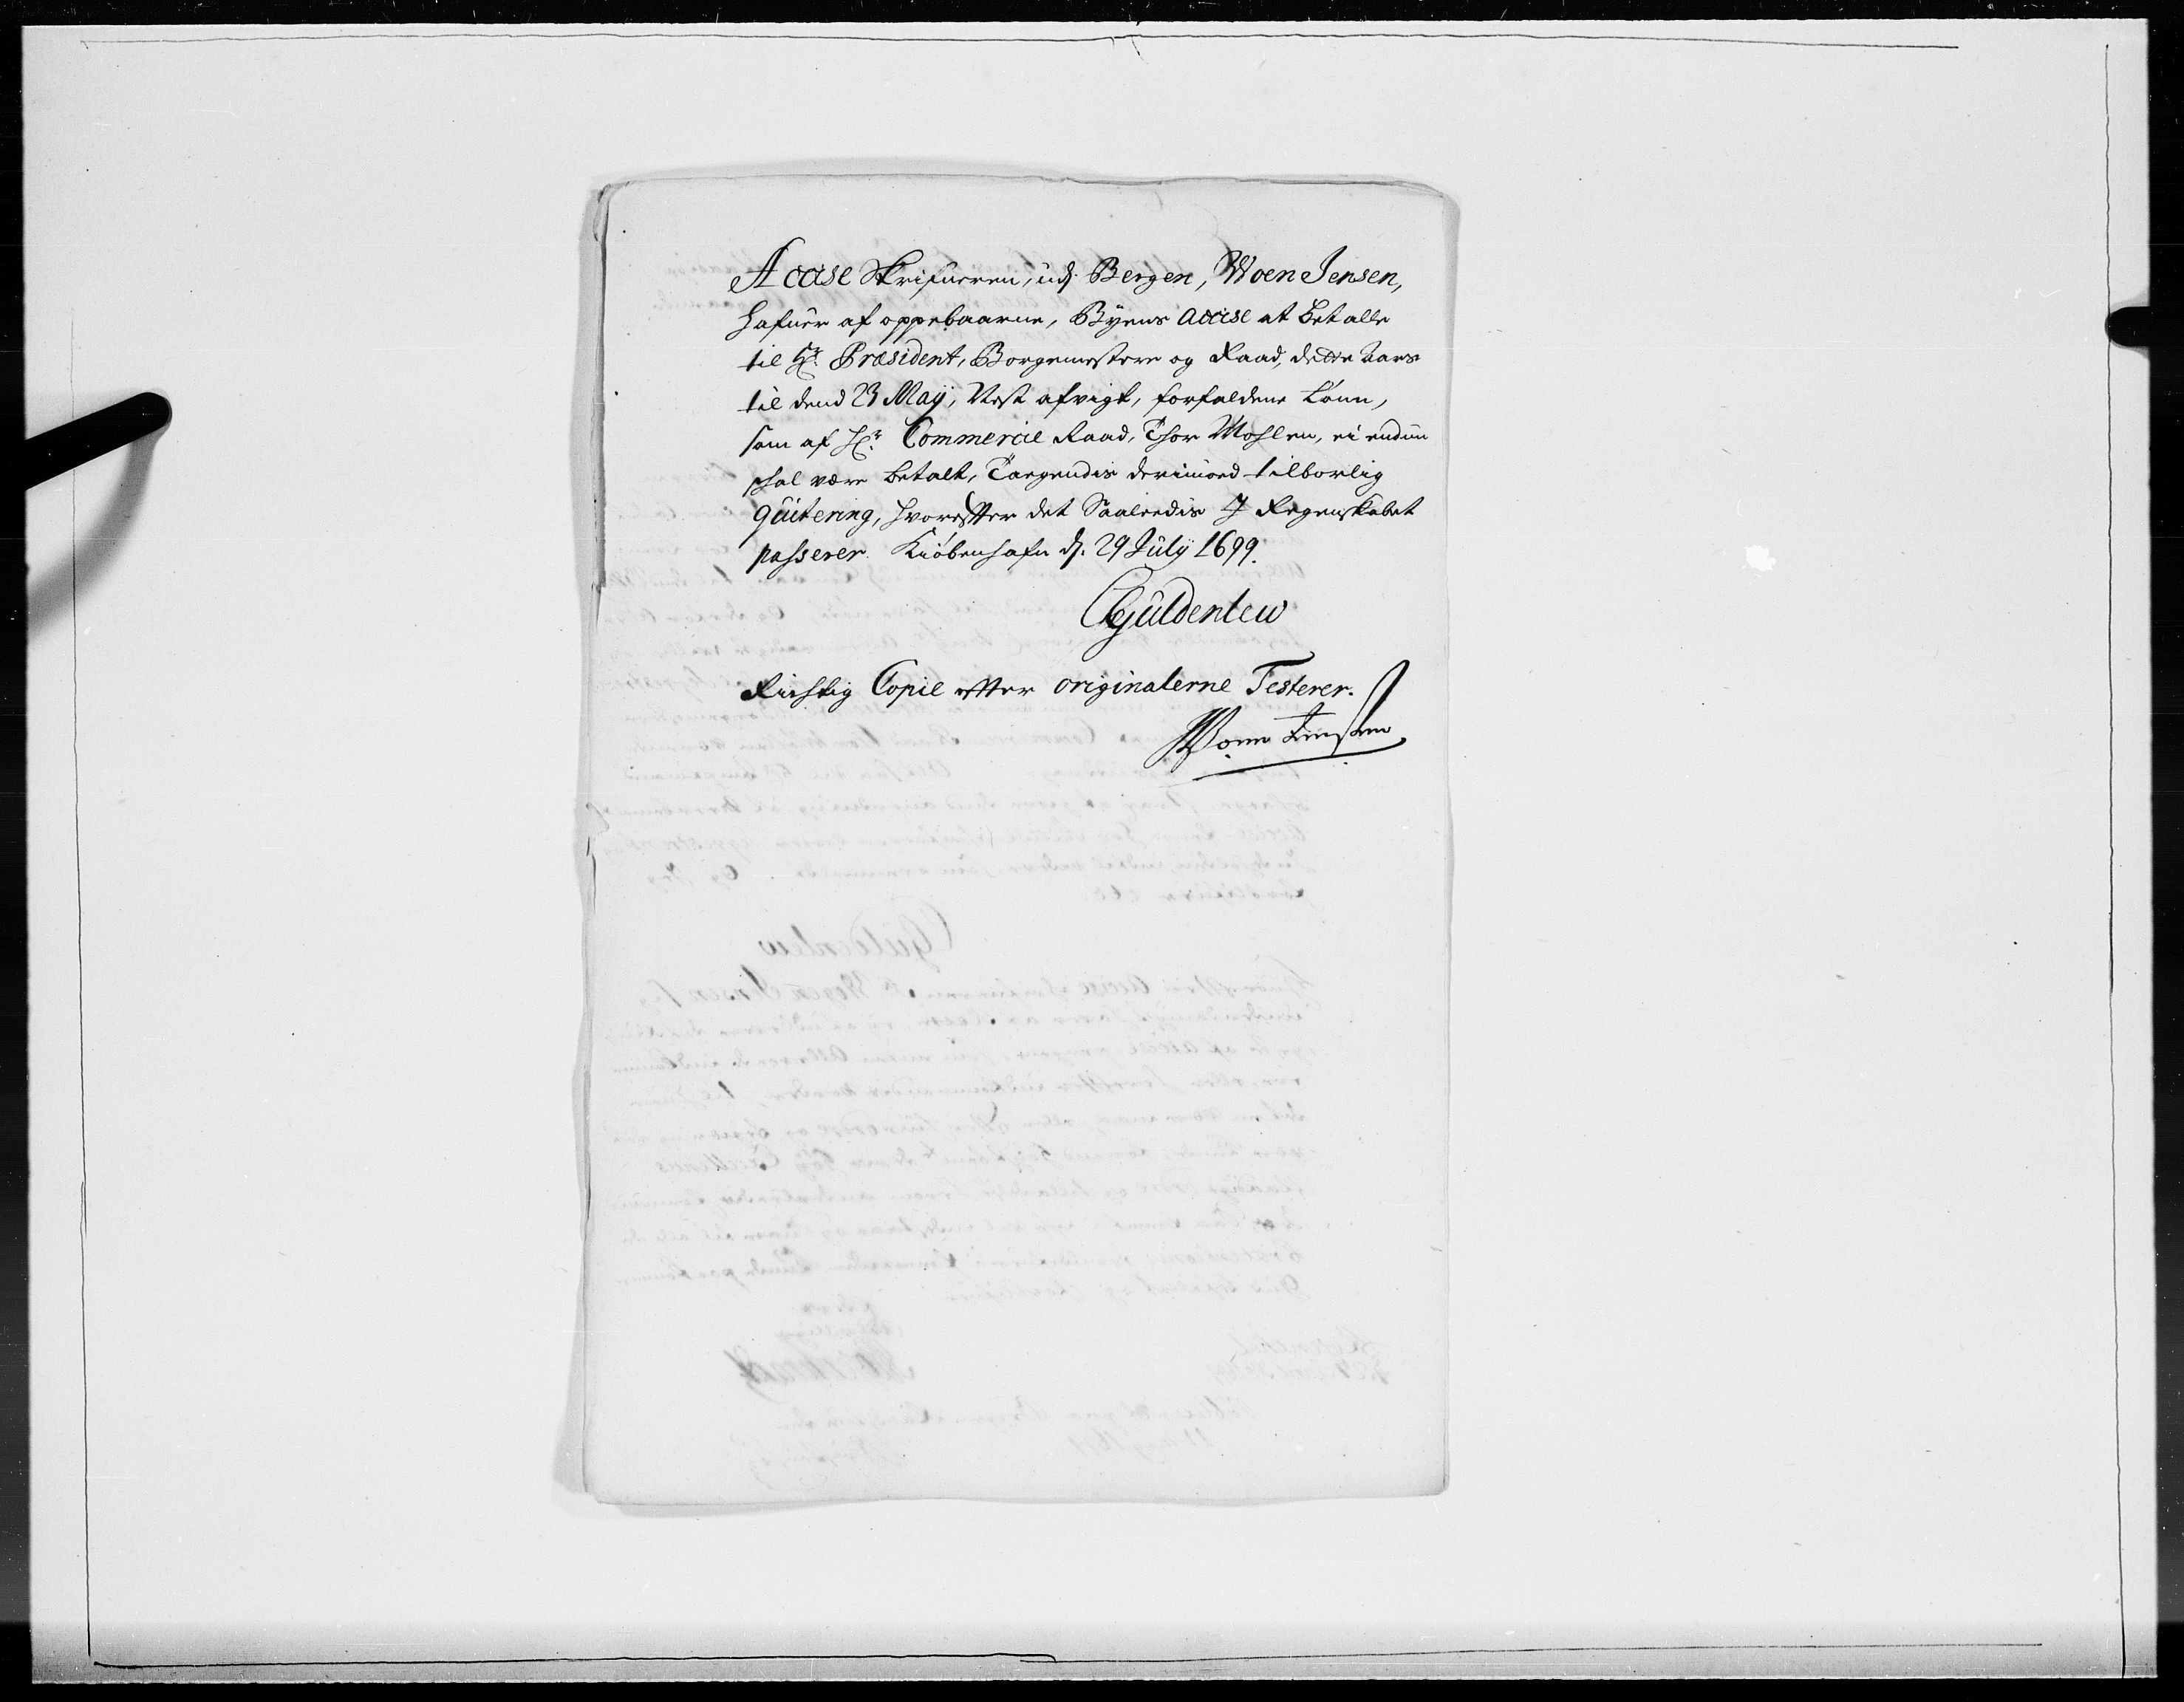 Accise Skrifueren, udj Bergen, Woen Jensen,
hafuer af oppebaarne, Byens accise at betalle
til Hr. Præsident, Borgemestere og Raad, dette Aars
til dend 23 Maij, Nest afvigt, forfaldene Lønn,
som af Hr. Commercie Raad, Thor Mohlen, ei endnu
schal være betalt, Tagendis derimoed tilbørlig
qvitering, hvorefter det Saaleedis J Regenskabet
passerer. Kiöbenhafn dj. 29 Julij 1699.
Guldenlew
Richtig Copie efter originalerne Testerer.
Woen Jensen